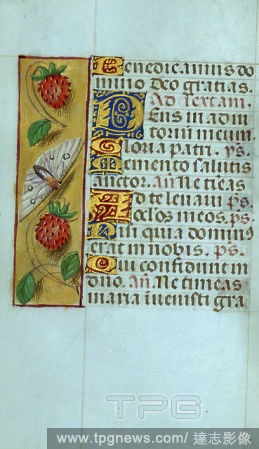 Benedicamus do
mino Deo gratias.
Ad Sextam.
Deus in adiu
torium meum.
Gloria patri. ps.
Memento salutis
auctor. Añ Ne timeas
Ad te levavi ps.
oculos meos. ps.
Nisi quia dominus
erat in nobis. ps.
Qui confidunt in
dño. Añ. Ne timeas
maria invenisti gra
TPG
www.tpgnews.com/ 達志影像